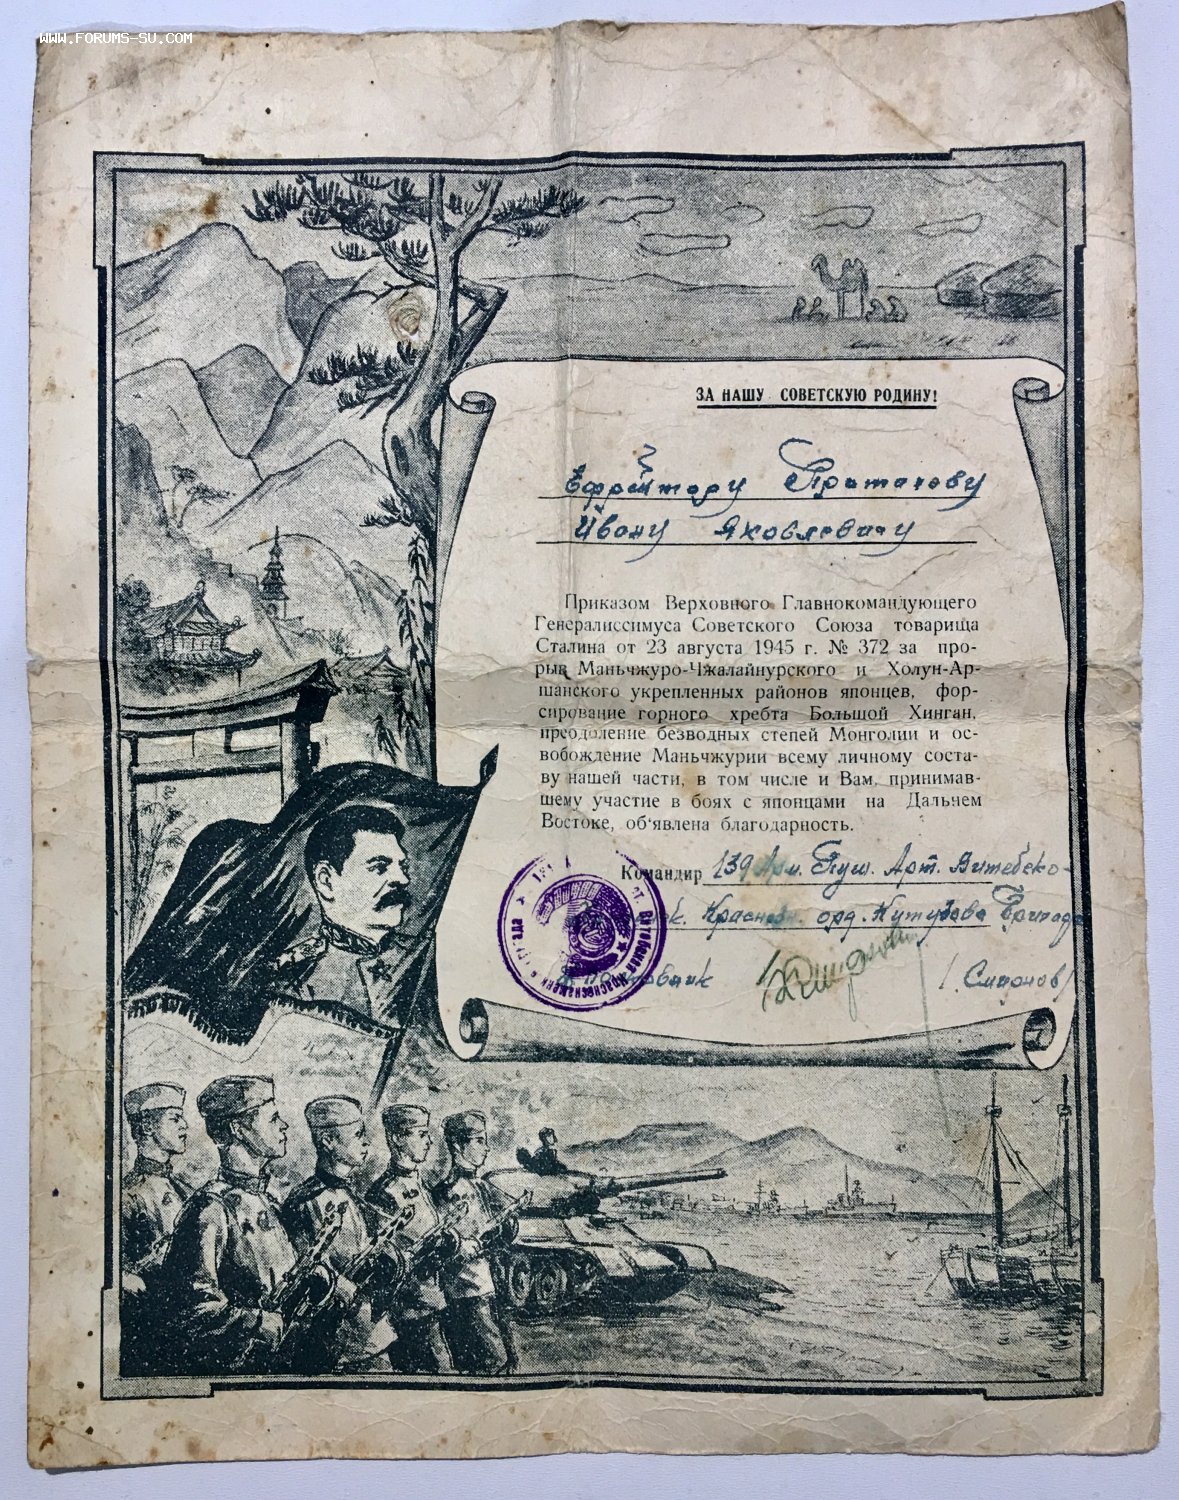 WWW.FORUMS-SU.COM
ЗА НАШУ СОВЕТСКУЮ РОДИНУ!
Ефрейтору
Ивану Яковлевичу
Приказом Верховного Главнокомандующего
Генералиссимуса Советского Союза товарища
Сталина от 23 августа 1945 г. № 372 за про-
рыв Маньчжуро-Чжалайнурского и Холун-Ар-
шанского укрепленных районов японцев, фор-
сирование горного хребта Большой Хинган,
преодоление безводных степей Монголии и ос-
вобождение Маньчжурии всему личному соста-
ву нашей части, в том числе и Вам, принимав-
шему участие в боях с японцами на Дальнем
Востоке, об'явлена благодарность.
Командир 139 Арм. Пуш. Арт. Витебско-
Краснозн. орд. Кутузова Бригады
/Смирнов/